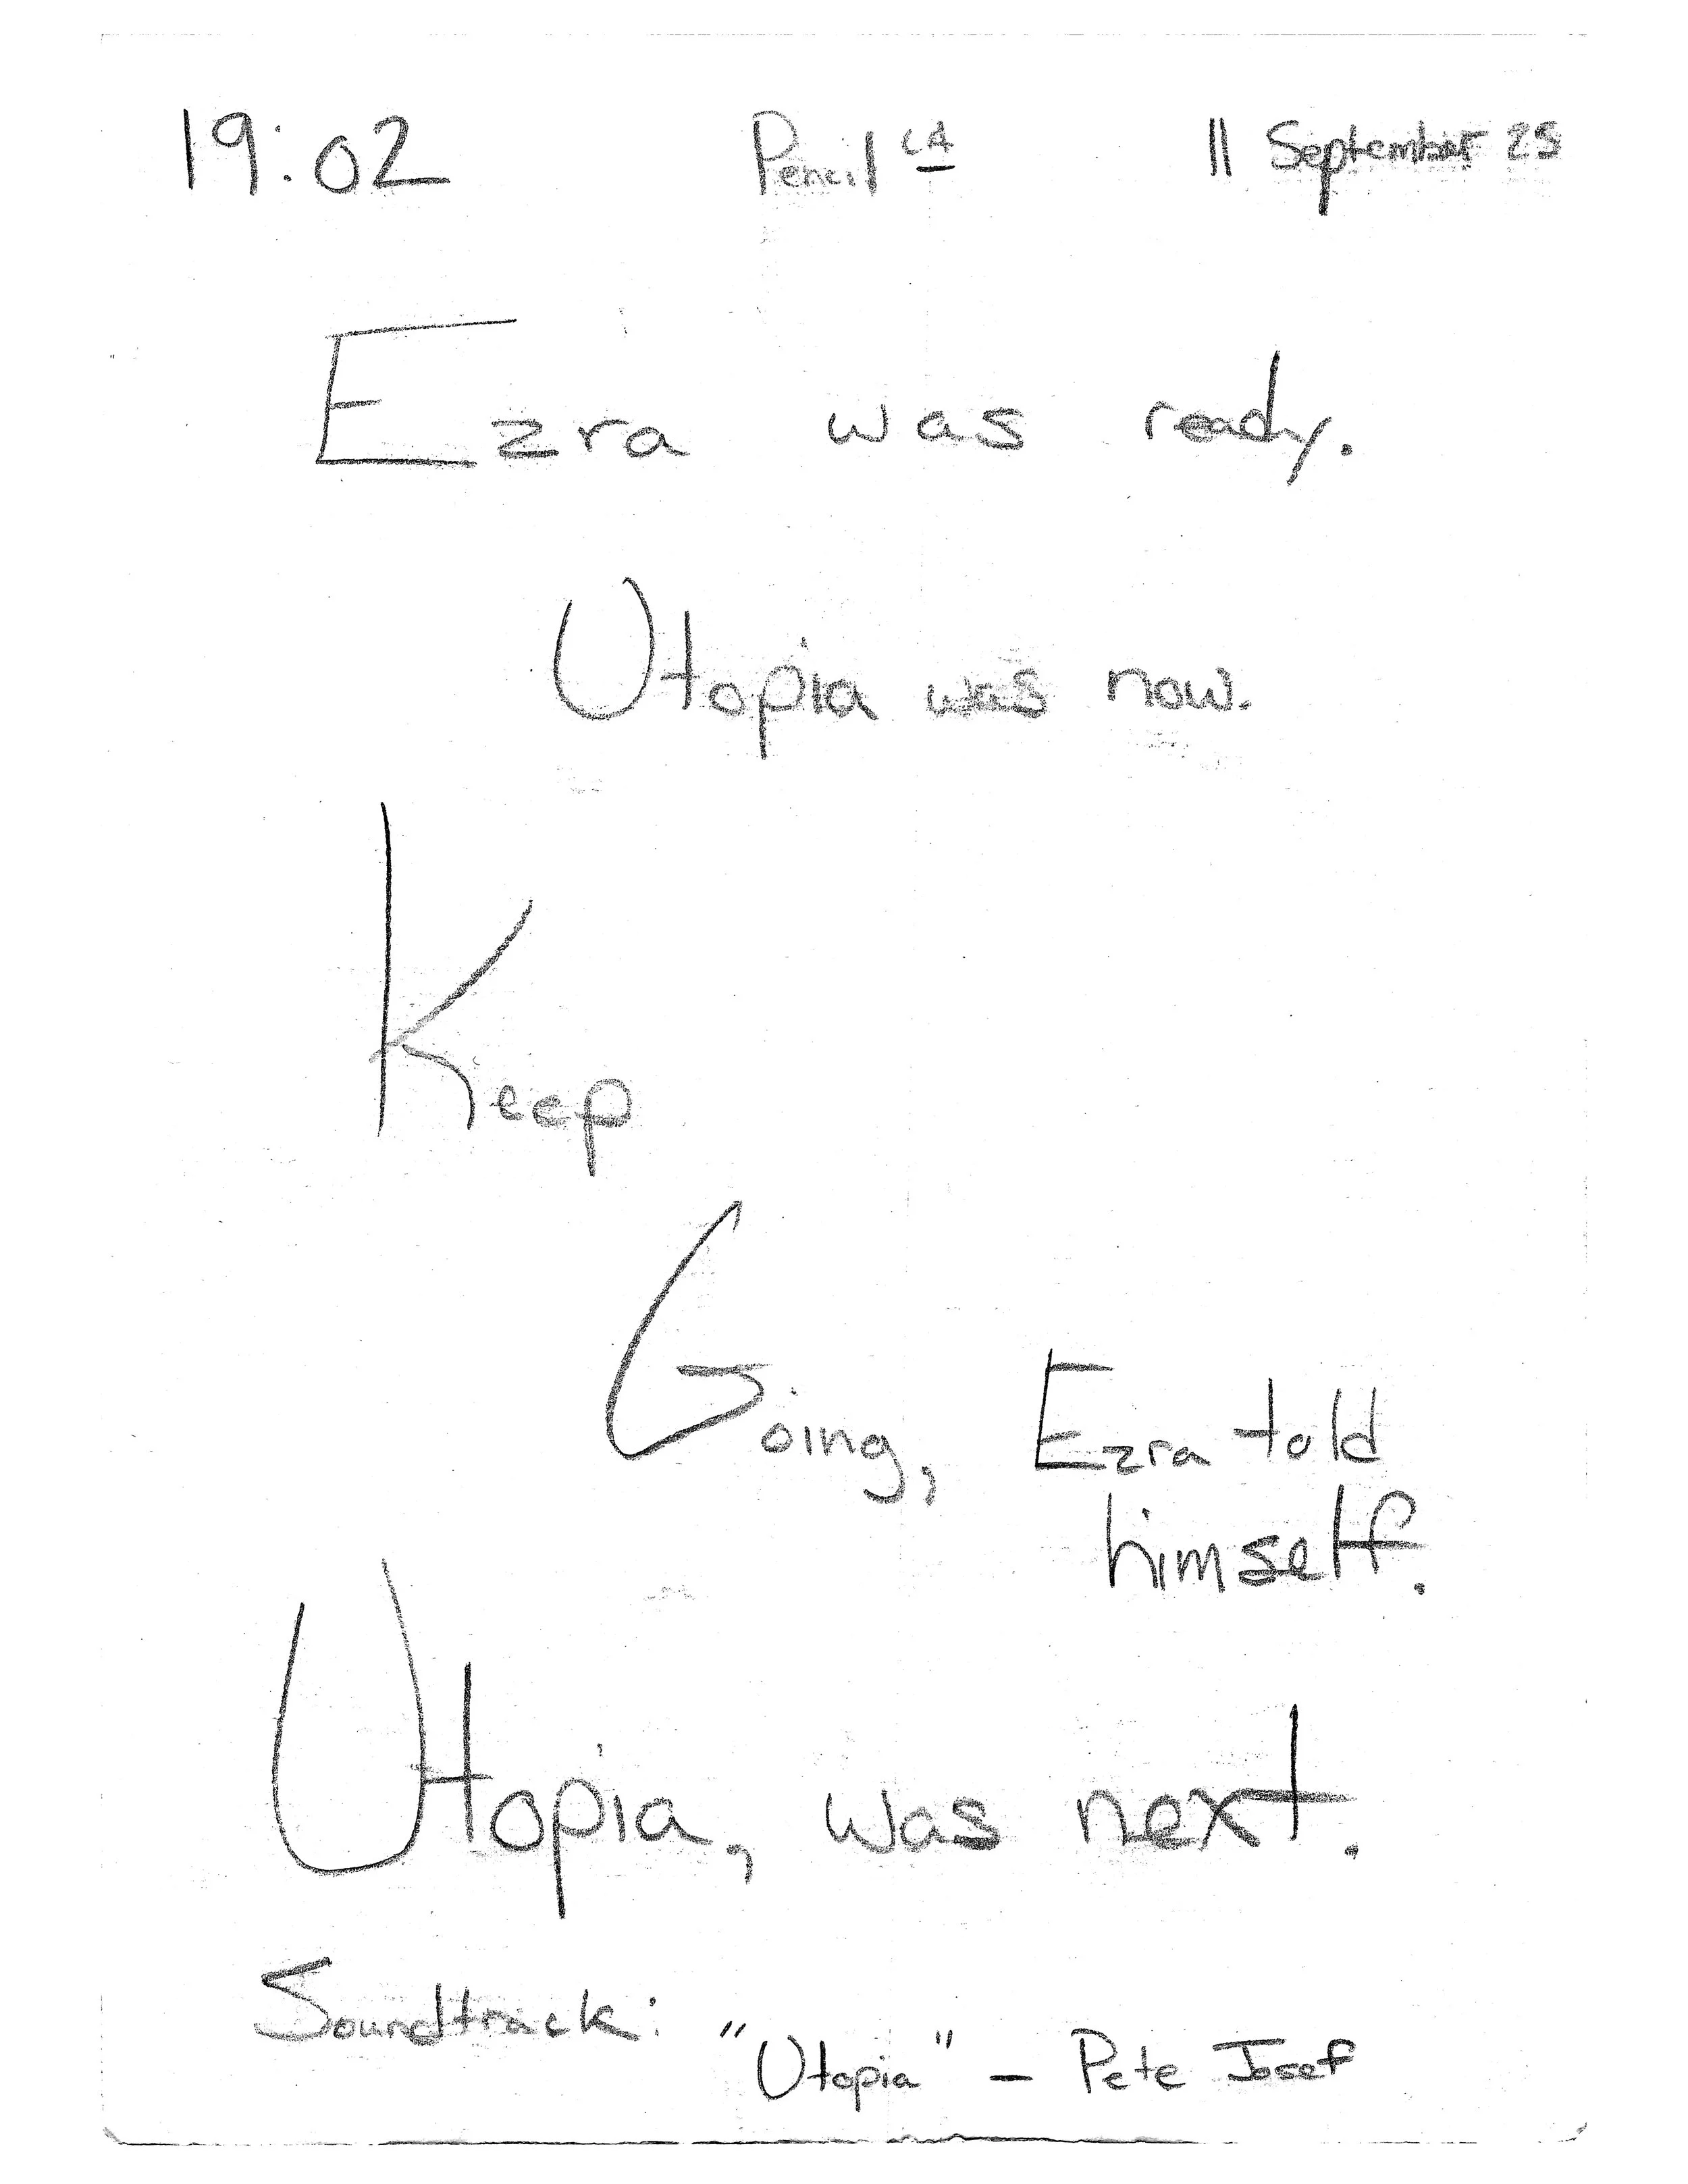 19:02 Pencil CA 11 September 25
Ezra was ready.
Utopia was now.
Keep
Going, Ezra told
himself.
Utopia, was next.
Soundtrack:
"Utopia" – Pete Josef